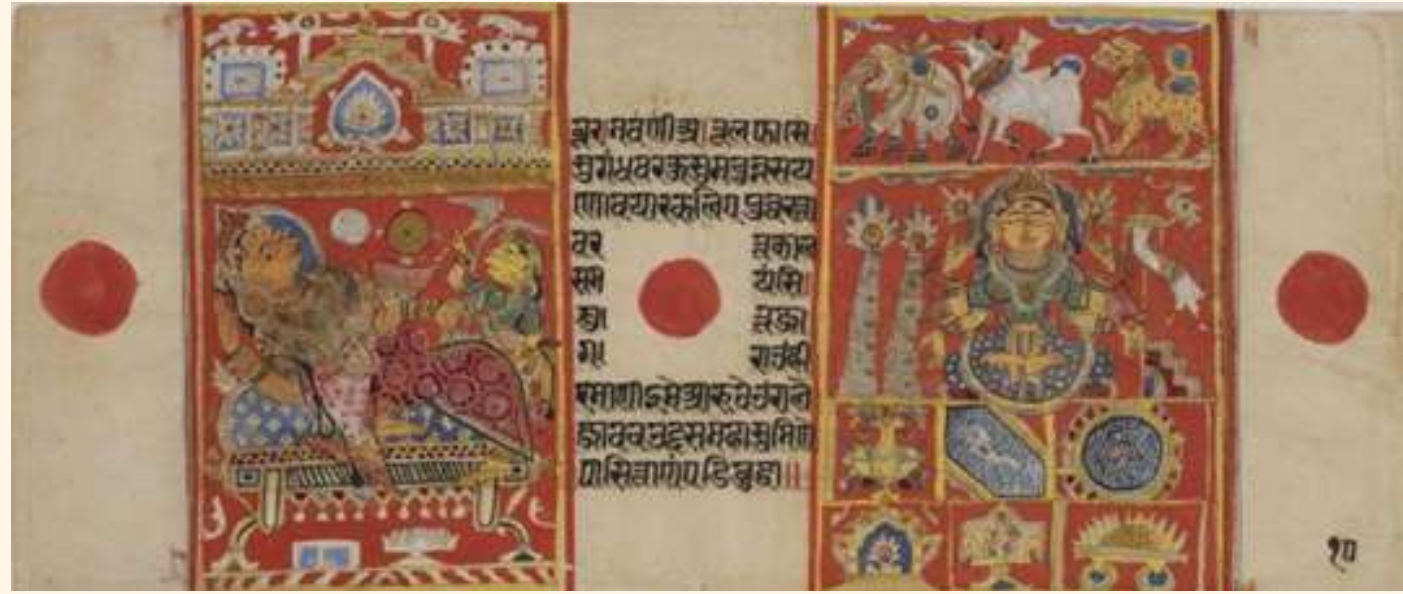 बूर नवणीअ तूल फासे
सुगंधवरकुसुमचुन्नसय
णोवयारकलिए पुव्वरत्ता
वर त्तकाल
सम यंसि
सु त्तजा
रमाणीइमेआरुवेउराले
जावचउद्दसमहासुमिणे
पासित्ताणंपडिबुद्धा॥
१०